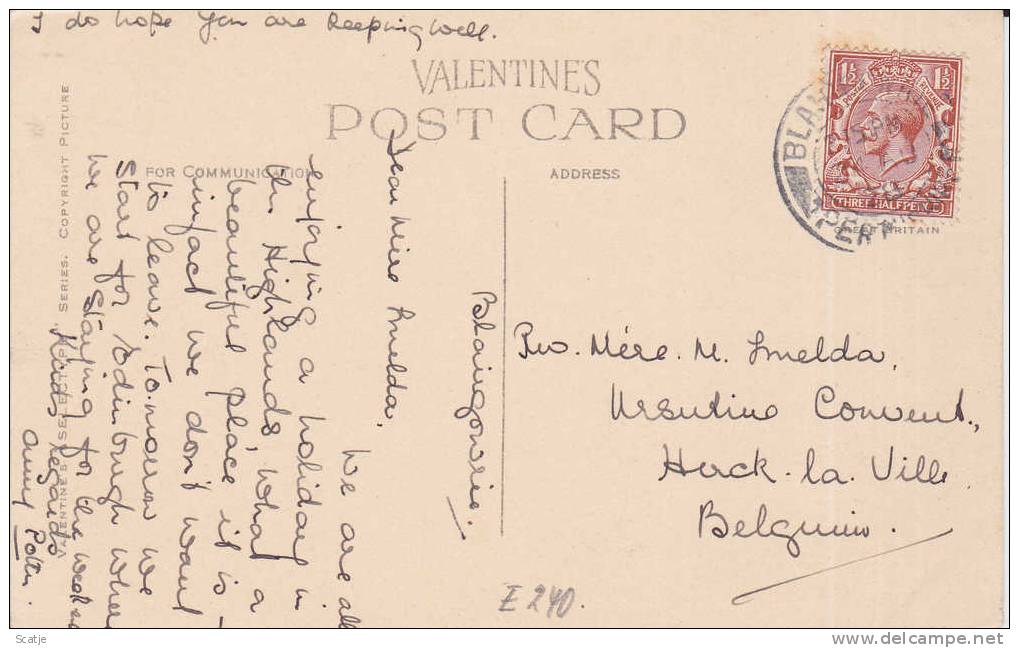 I do hope you are keeping well.
VALENTINE'S
POST CARD
FOR COMMUNICATION
ADDRESS
VALENTINE'S "SELECTYPE" SERIES. COPYRIGHT PICTURE
Blairgowrie.
Dear Mère Imelda,
We are all
enjoying a holiday in
the Highlands, what a
beautiful place it is -
infact we don't want
to leave. Tomorrow we
start for Edinburgh where
we are staying for the week
Kinds regards
Potter.
1½ 1½
POSTAGE REVENUE
THREE HALFPENCE
BLAI
PERT
GREAT BRITAIN
Rev. Mère. M. Imelda,
Ursuline Convent.,
Herck-la-Ville
Belgium.
E 240.
Scatje
www.delcampe.net